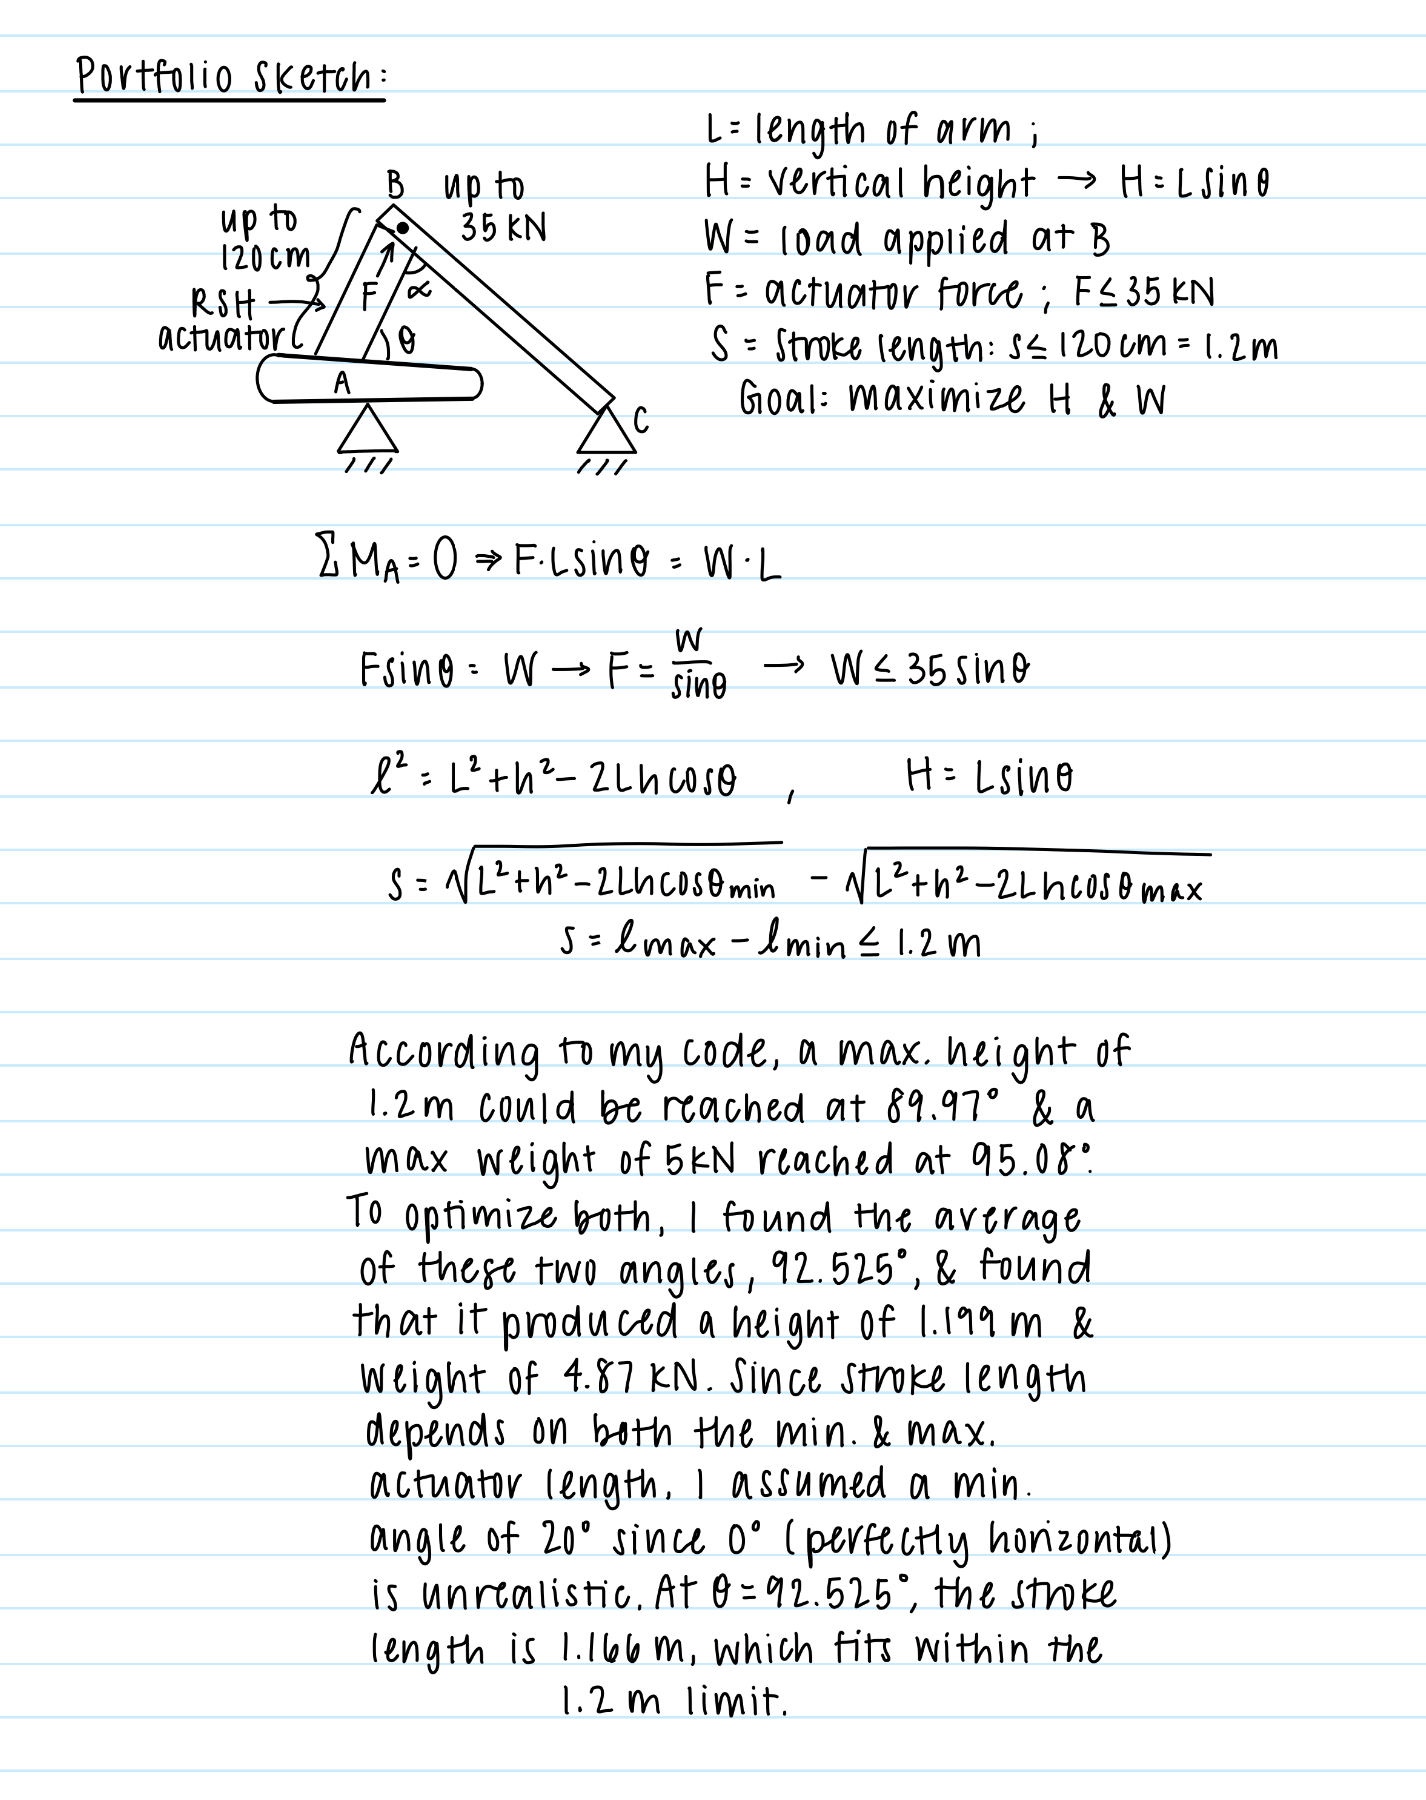 Portfolio sketch:
L = length of arm ;
H = vertical height → H = L sinθ
W = load applied at B
F = actuator force ; F ≤ 35 kN
S = stroke length: s ≤ 120 cm = 1.2 m
Goal: maximize H & W
B up to
35 kN
up to
120 cm
RSH
actuator
F
α
θ
A
C
ΣM_A = 0 ⇒ F·L sinθ = W·L
F sinθ = W → F = W/sinθ → W ≤ 35 sinθ
ℓ² = L² + h² − 2Lh cosθ , H = L sinθ
s = √(L² + h² − 2Lh cosθ min) − √(L² + h² − 2Lh cosθ max)
s = ℓ max − ℓ min ≤ 1.2 m
According to my code, a max. height of
1.2 m could be reached at 89.97° & a
max weight of 5kN reached at 95.08°.
To optimize both, I found the average
of these two angles, 92.525°, & found
that it produced a height of 1.199 m &
weight of 4.87 kN. Since stroke length
depends on both the min. & max.
actuator length, I assumed a min.
angle of 20° since 0° (perfectly horizontal)
is unrealistic. At θ = 92.525°, the stroke
length is 1.166 m, which fits within the
1.2 m limit.